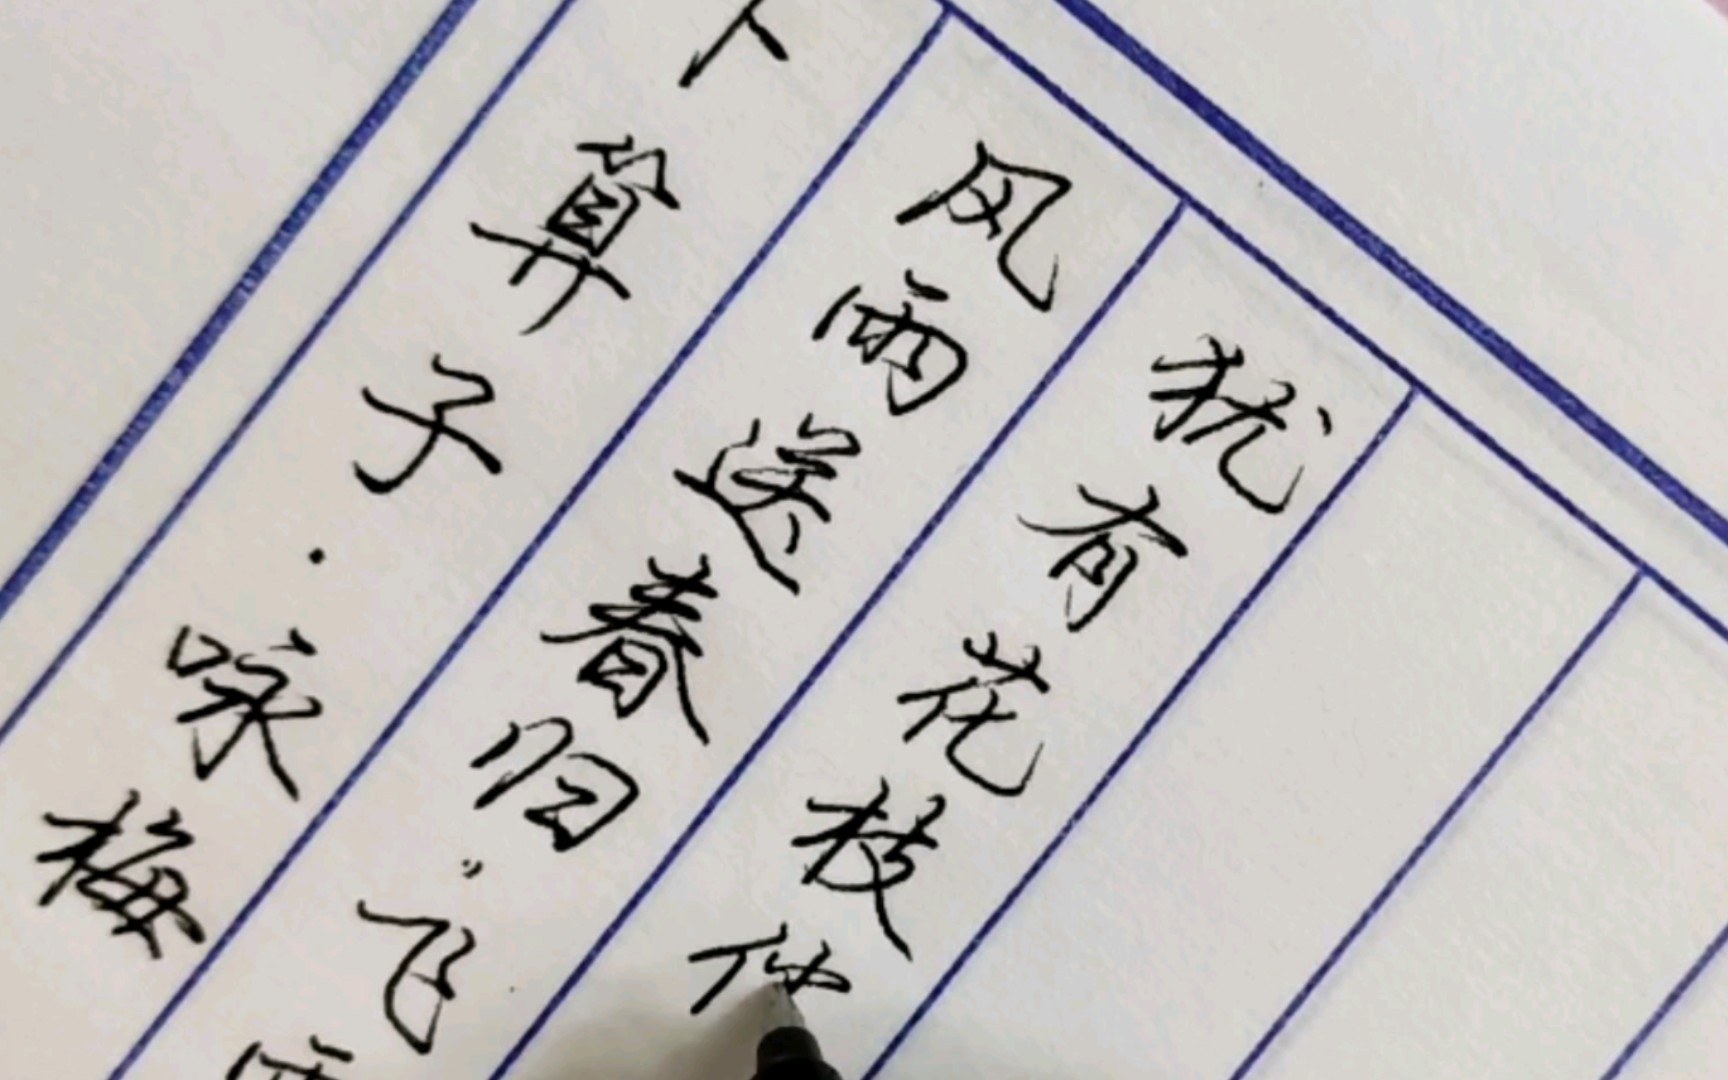 卜算子·咏梅
风雨送春归，飞
犹有花枝